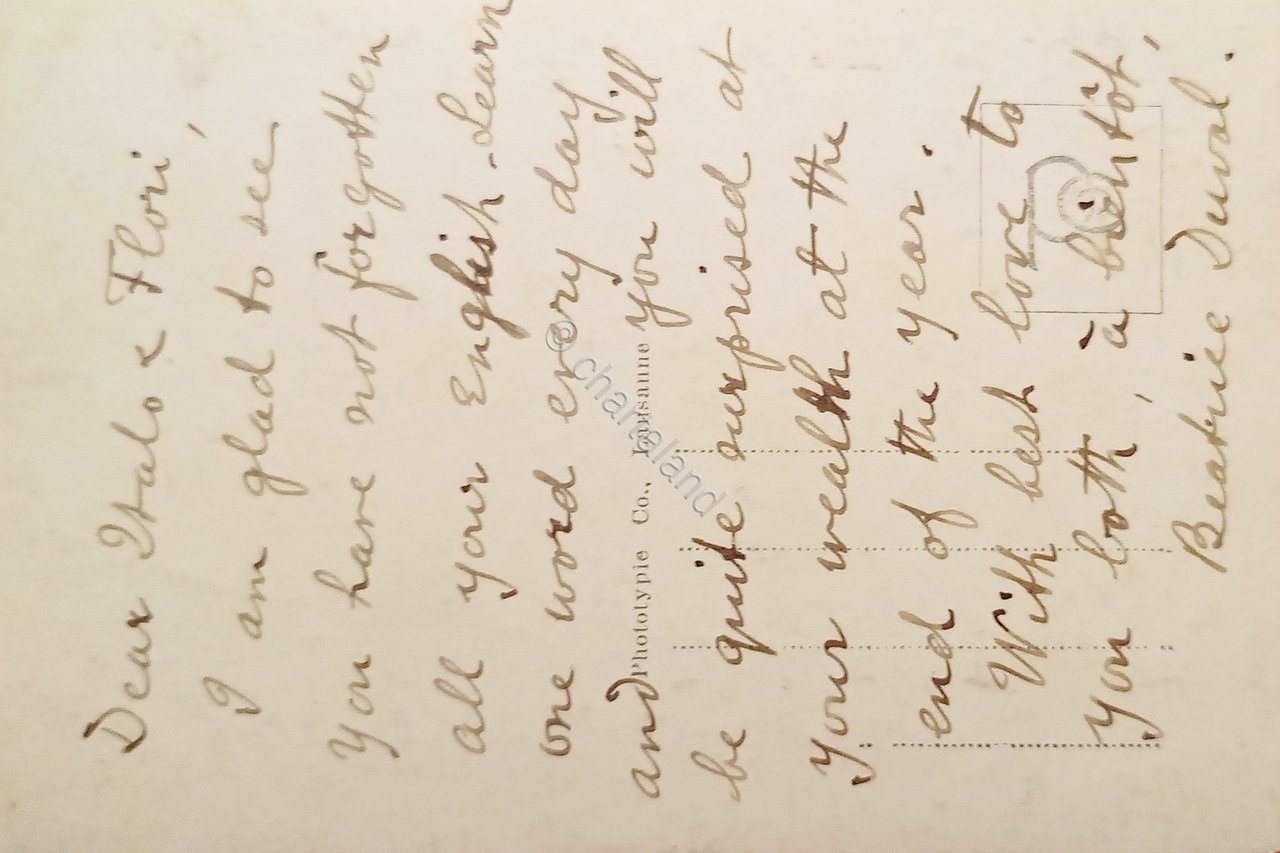 Dear Italo & Flori,
I am glad to see
you have not forgotten
all your English. Learn
one word every day
and you will
be quite surprised at
your wealth at the
end of the year.
With best love to
you both, à bientôt,
Beatrice Duval.
Phototypie Co., Lausanne
© chartaland